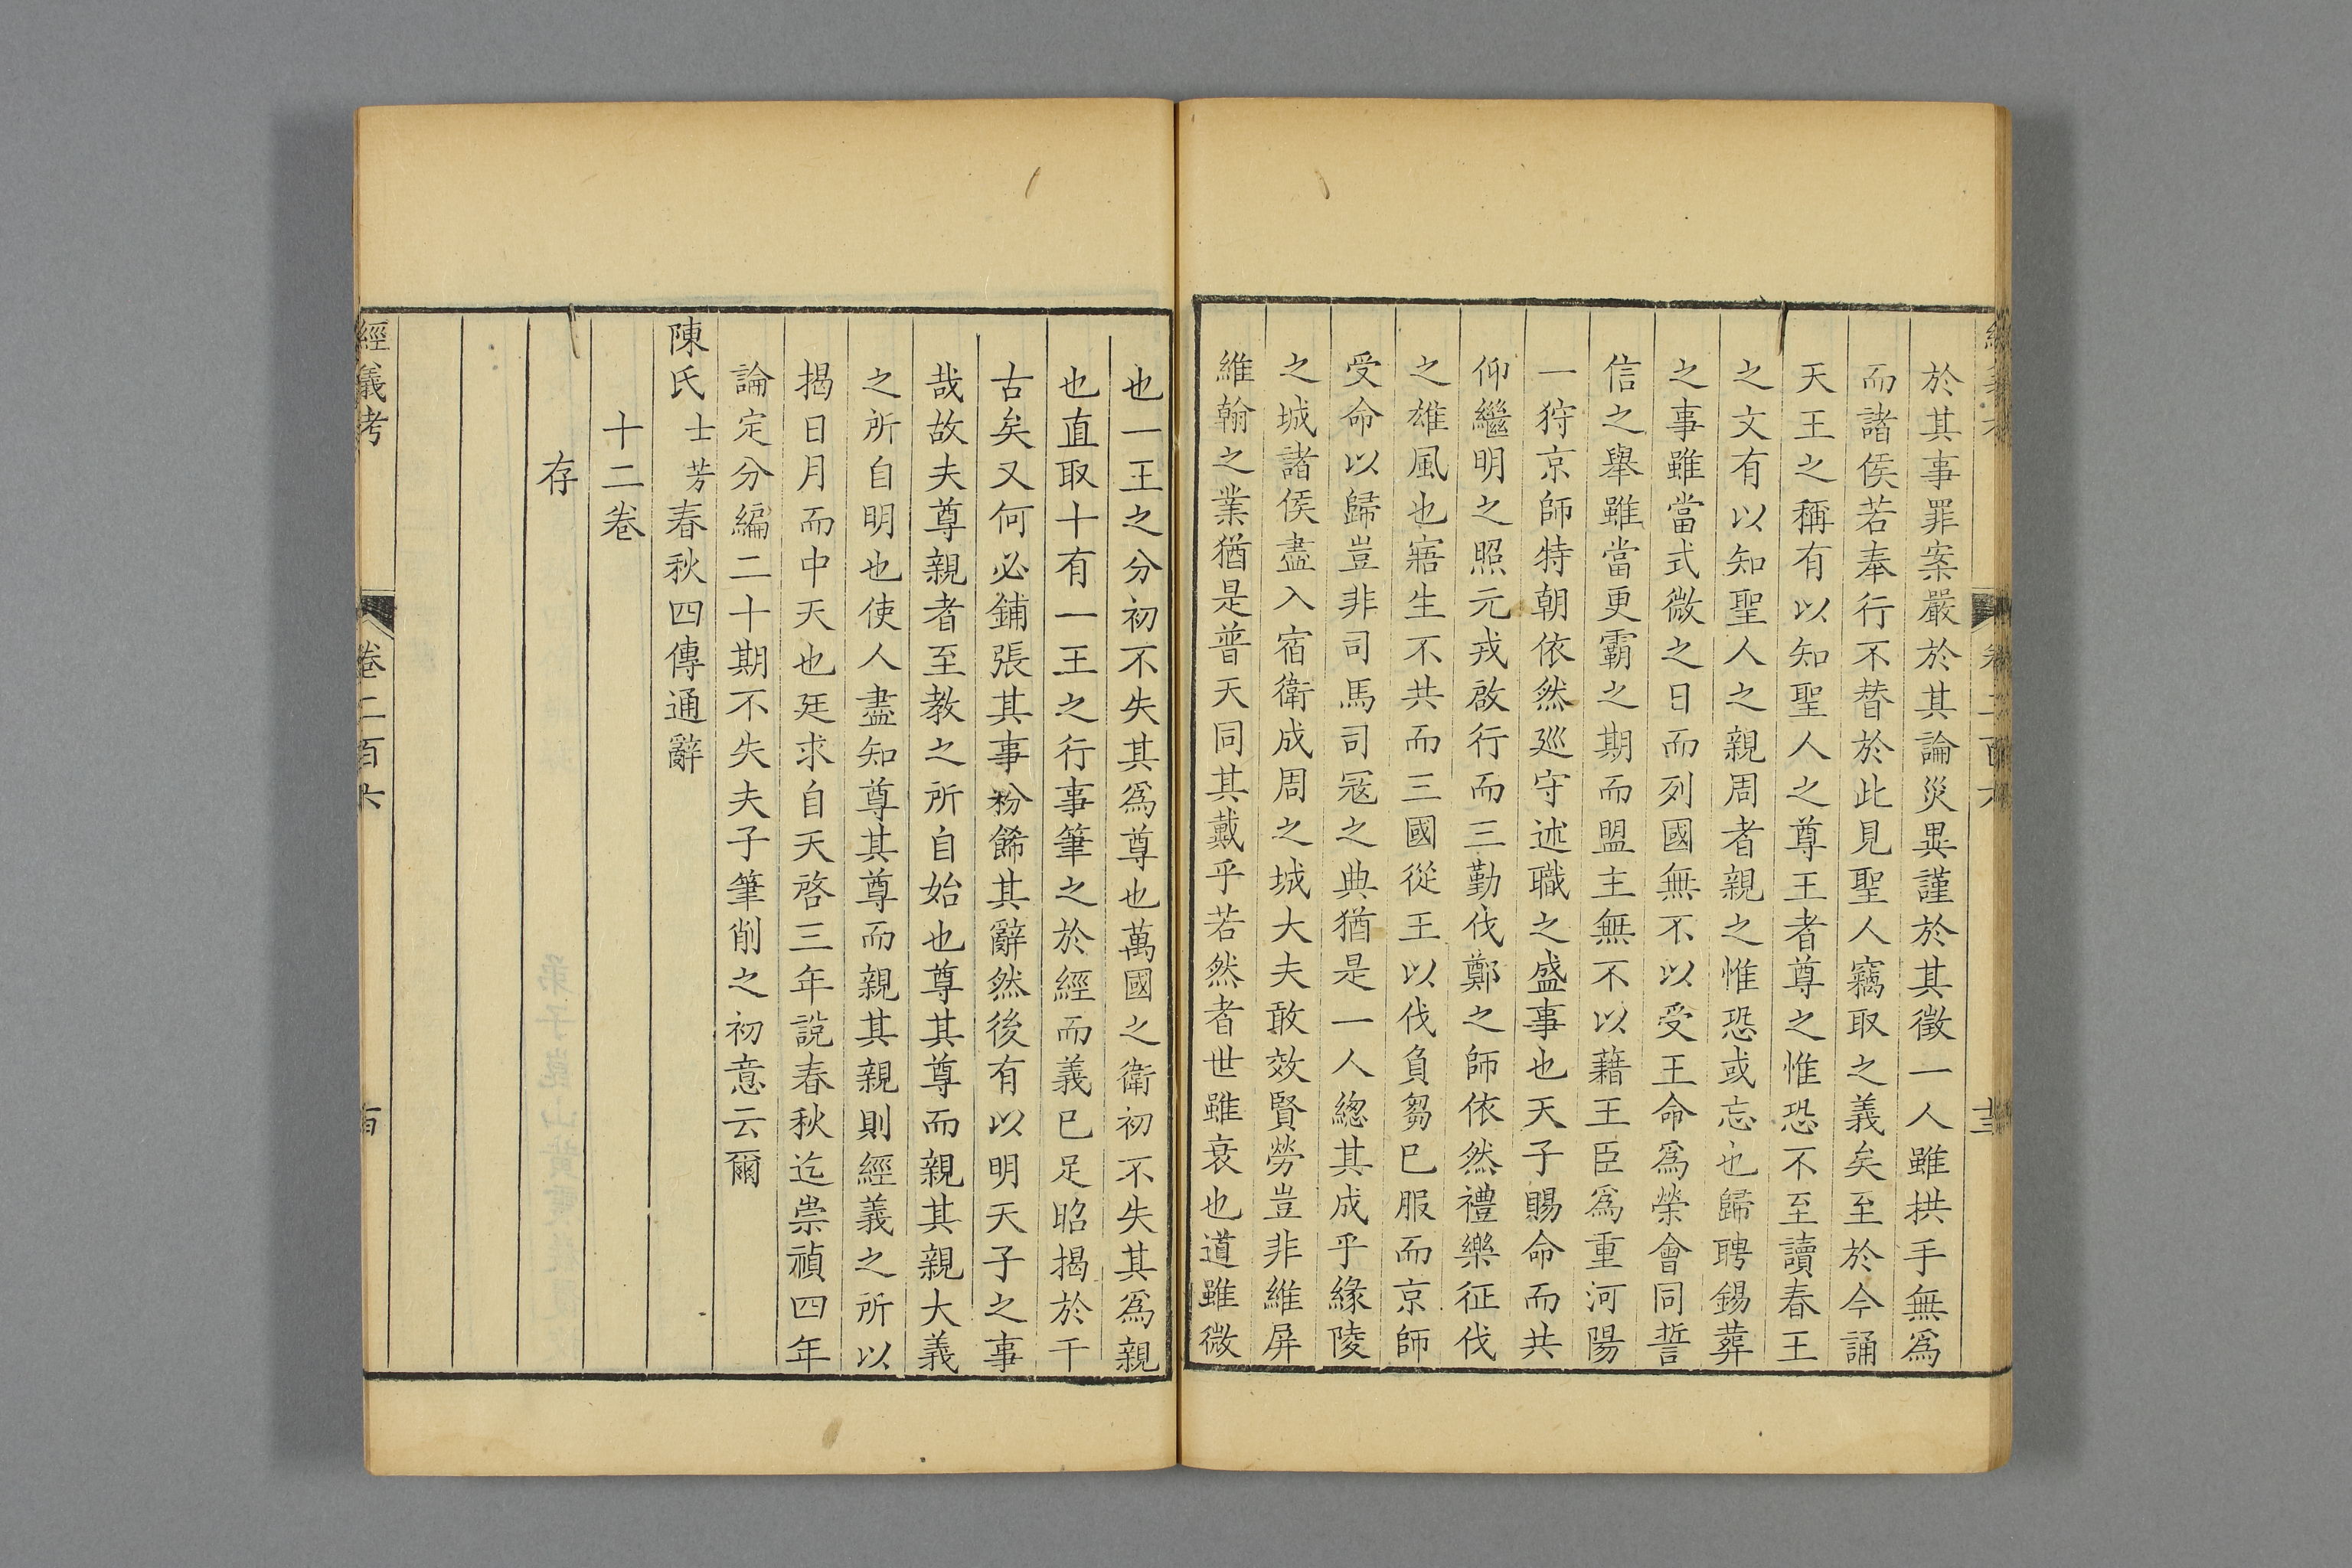 於其事罪案嚴於其論災異謹於其徵一人雖拱手無爲
而諸侯若奉行不替於此見聖人竊取之義矣至於今誦
天王之稱有以知聖人之尊王者尊之惟恐不至讀春王
之文有以知聖人之親周者親之惟恐或忘也歸聘錫葬
之事雖當式微之日而列國無不以受王命爲榮會同誓
信之舉雖當更霸之期而盟主無不以藉王臣爲重河陽
一狩京師特朝依然巡守述職之盛事也天子賜命而共
仰繼明之照元戎啟行而三勤伐鄭之師依然禮樂征伐
之雄風也寤生不共而三國從王以伐負芻巳服而京師
受命以歸豈非司馬司寇之典猶是一人緫其成乎緣陵
之城諸侯盡入宿衛成周之城大夫敢效賢勞豈非維屏
維翰之業猶是普天同其戴乎若然者世雖衰也道雖微
也一王之分初不失其爲尊也萬國之衛初不失其爲親
也直取十有一王之行事筆之於經而義巳足昭揭於千
古矣又何必鋪張其事粉餙其辭然後有以明天子之事
哉故夫尊親者至教之所自始也尊其尊而親其親大義
之所自明也使人盡知尊其尊而親其親則經義之所以
揭日月而中天也廷求自天啓三年說春秋迄崇禎四年
論定分編二十期不失夫子筆削之初意云爾
陳氏士芳春秋四傳通辭
十二卷
存
經義考
卷二百六